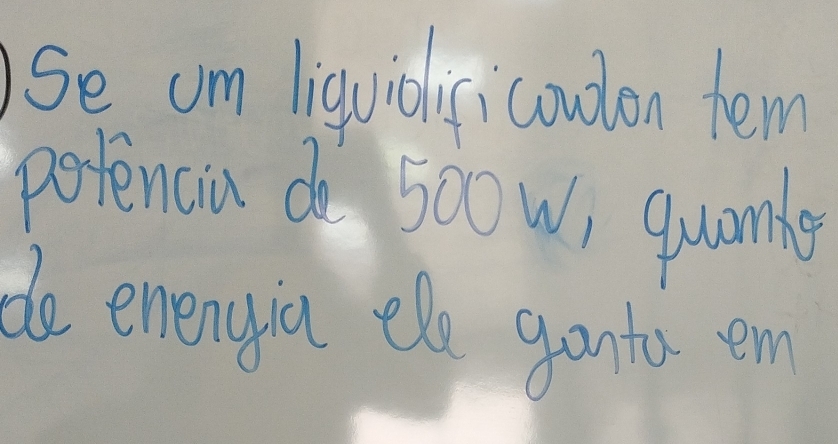 ) Se um liquidificador tem
potência de 500 W, quanto
de energia ele gasta em